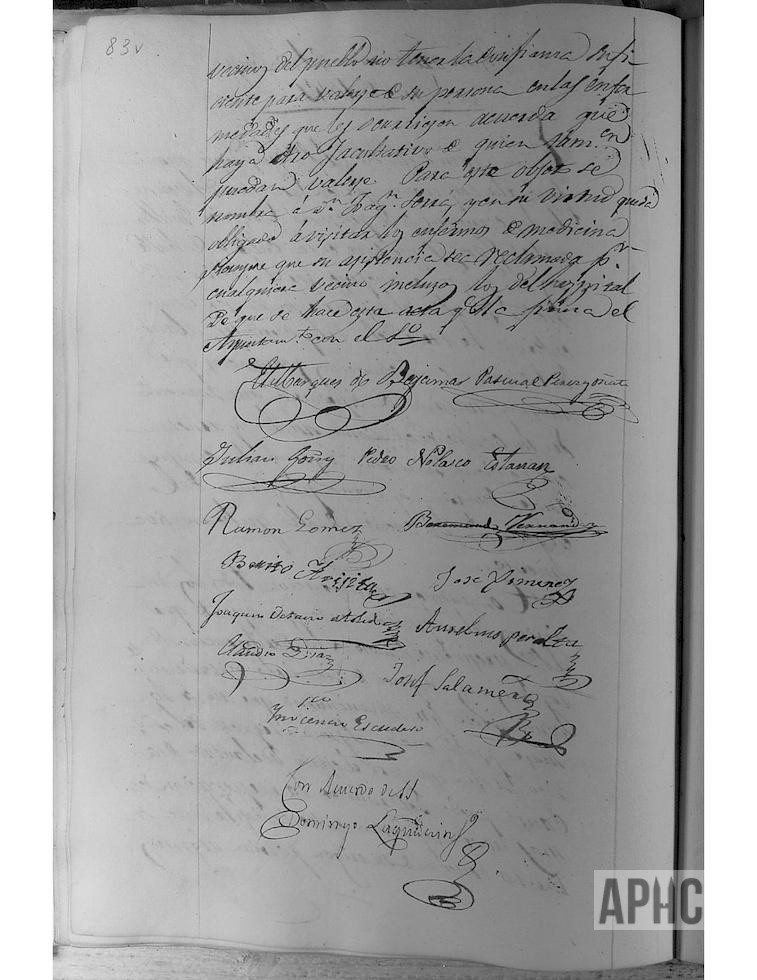 83v
vecinos del pueblo no tener la confianza sufi-
ciente para valerse de su persona en las enfer
medades que les ocurriesen acuerda que
haya otro facultativo de quien tam.en
puedan valerse. Para este objeto se
nombra á Dn. Joaqn. Serra, y en su virtud queda
obligado á visitar los enfermos de medicina
siempre que su asistencia sea reclamada pr.
cualquiera vecino incluso los del hospital
De que se hace esta acta que la firma el
Ayuntam.to con el S.o
El Marques de Bejamar Pascual Perez y Oñate
Julian Goñy Pedro Nolasco Estanan
Ramon Gomez Hernandez
Benito José Ximenez
Joaquin Anselmo peralta
Claudio Diaz
Josef Salamero
Inocencio Escudero
Con Acuerdo de SS
Domingo
APHC